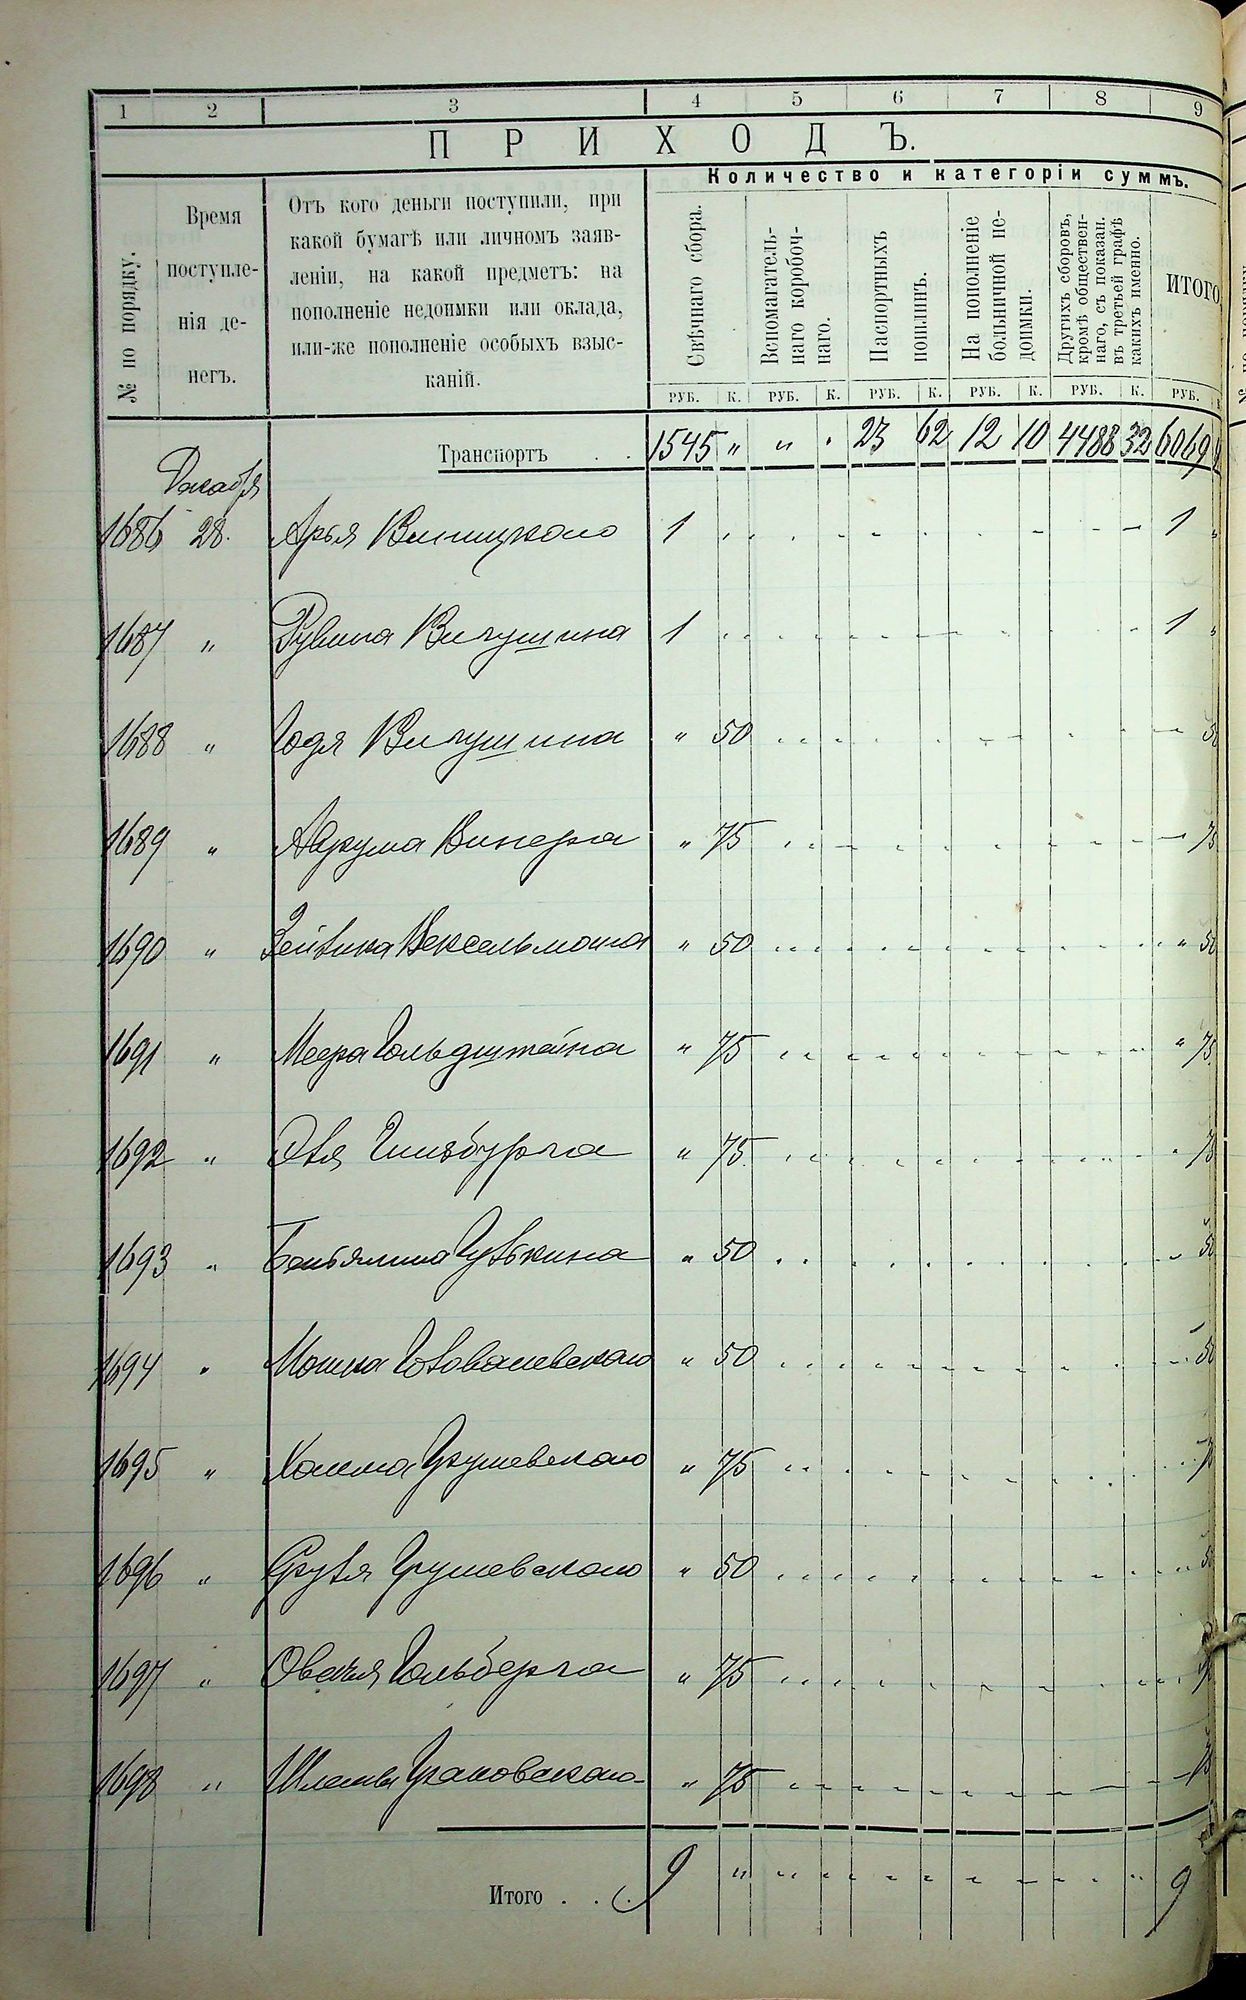 1 2 3 4 5 6 7 8 9
ПРИХОДЪ.
№ по порядку.
Время поступле-
нія де-
негъ.
Отъ кого деньги поступили, при
какой бумагѣ или личномъ заяв-
леніи, на какой предметъ: на
пополненіе недоимки или оклада,
или-же пополненіе особыхъ взыс-
каній.
Количество и категоріи суммъ.
Свѣчнаго сбора.
Вспомагатель-
наго коробоч-
наго.
Паспортныхъ
пошлинъ.
На пополненіе
больничной не-
доимки.
Другихъ сборовъ,
кромѣ обществен-
наго, съ показан.
въ третьей графѣ
какихъ именно.
ИТОГО
РУБ. К. РУБ. К. РУБ. К. РУБ. К. РУБ. К. РУБ.
Транспортъ . . 1545 " " " 23 62 12 10 4488 32 6069
Декабря
1686 28. Арья Виницкаго 1 1
1687 " Рувина Вигушина 1 1
1688 " Годя Вигушина " 50 50
1689 " Абрума Винера " 75 75
1690 " Зейвика Вексельмана " 50 " 50
1691 " Меера Гольдштейна " 75 " 75
1692 " Гинзбурга " 75 " 75
1693 " Беньямина " 50 50
1694 " Мошка " 50 50
1695 " Хаима Грушевскаго " 75 75
1696 " Грушевскаго " 50 50
1697 " Овсея Гольберга " 75 75
1698 " Шлемы Грановскаго " 75 75
Итого . . . 9 " 9